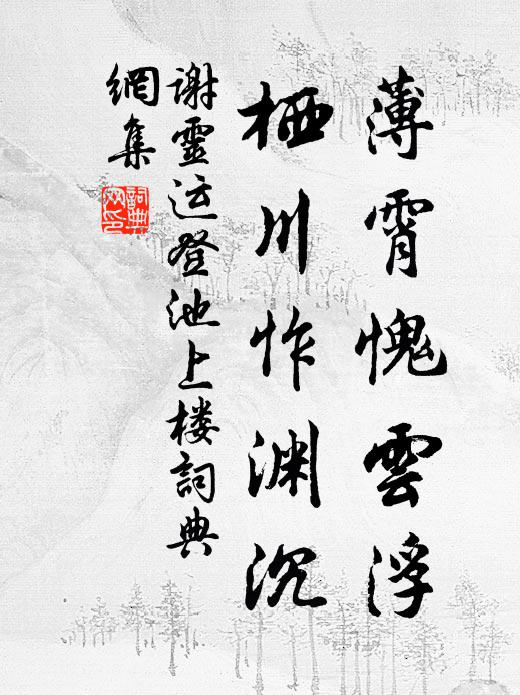 薄霄愧雲浮
栖川怍渊沉
谢靈运登池上楼詞典
網集
詞典網印